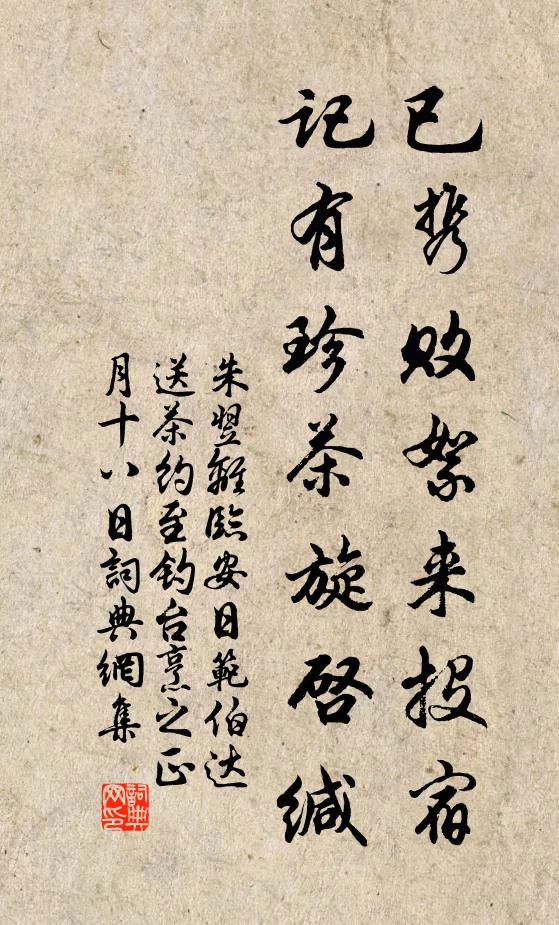 已携败絮来投宿
记有珍茶旋启缄
朱翌離臨安日範伯达
送茶约至钓台烹之正
月十八日詞典網集
詞典
网印